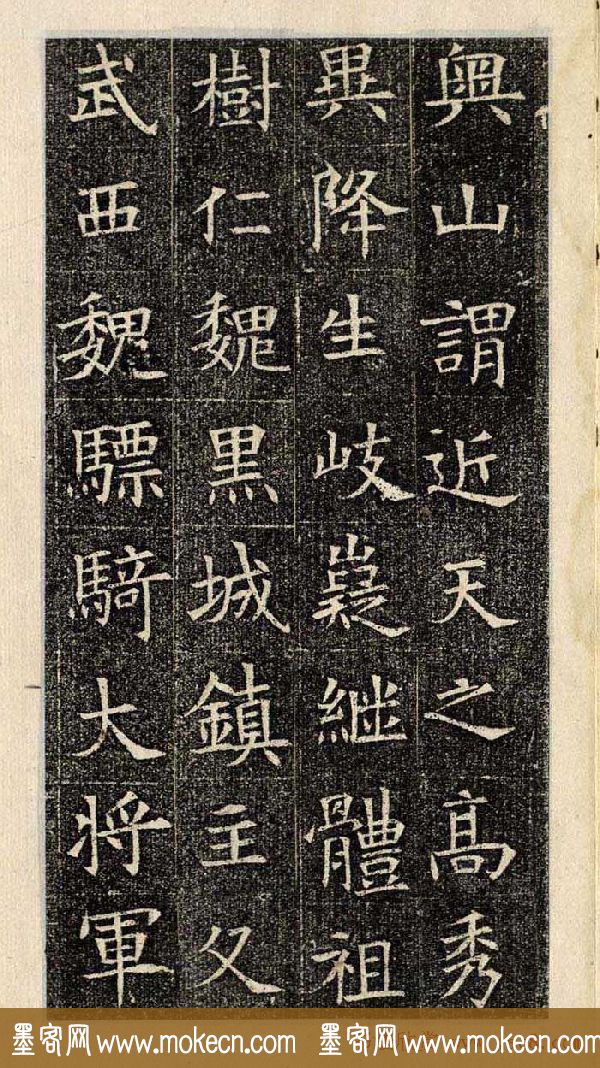 輿山謂近天之高秀
異降生岐嶷継體祖
樹仁魏黒城鎮主父
武西魏驃騎大将軍
墨客网 www.mokecn.com 墨客网 www.mokecn.com